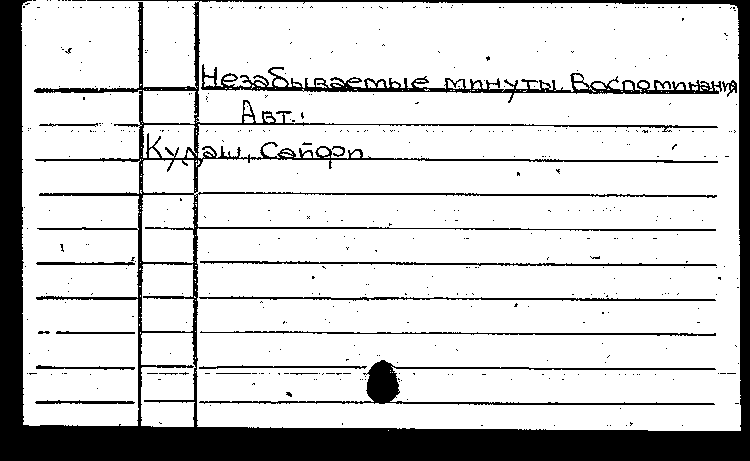 Незабываемые минуты. Воспоминания
Авт.:
Кулаш,